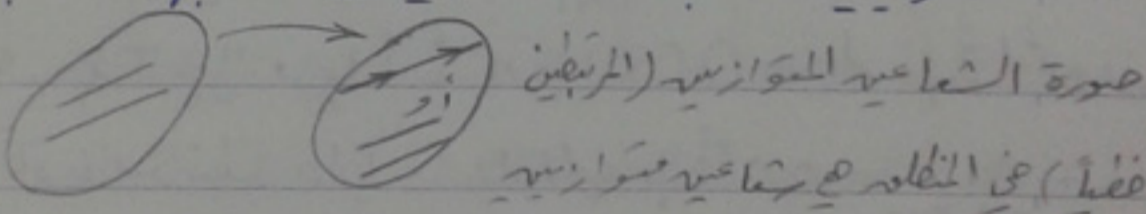 صورة الشعاعين المتوازيين (المرتبطين
أو
خطياً) في المنطلق هي شعاعين متوازيين